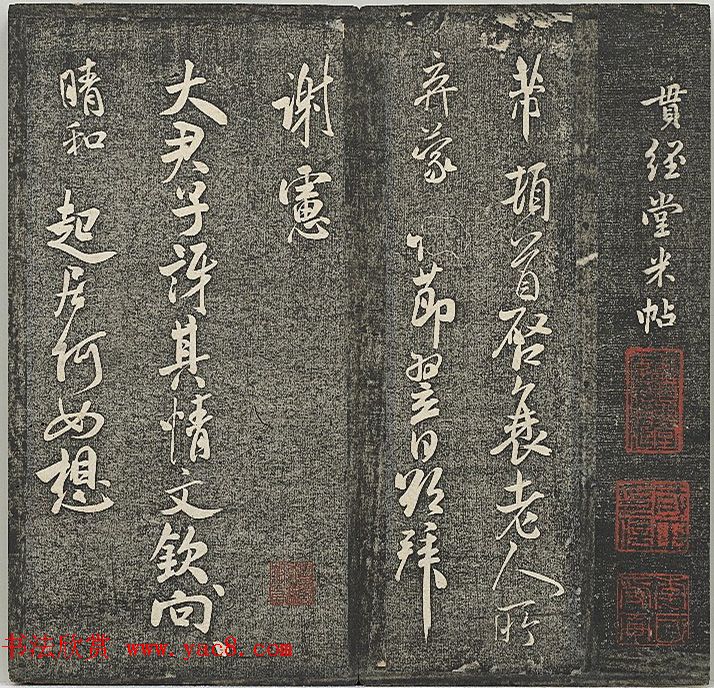 貫經堂米帖
芾頓首啓衰老人所
弃蒙
节翌日欲拜
謝憲
大君子訝其情文欽向
晴和 起居何如想
书法欣赏 www.yac8.com